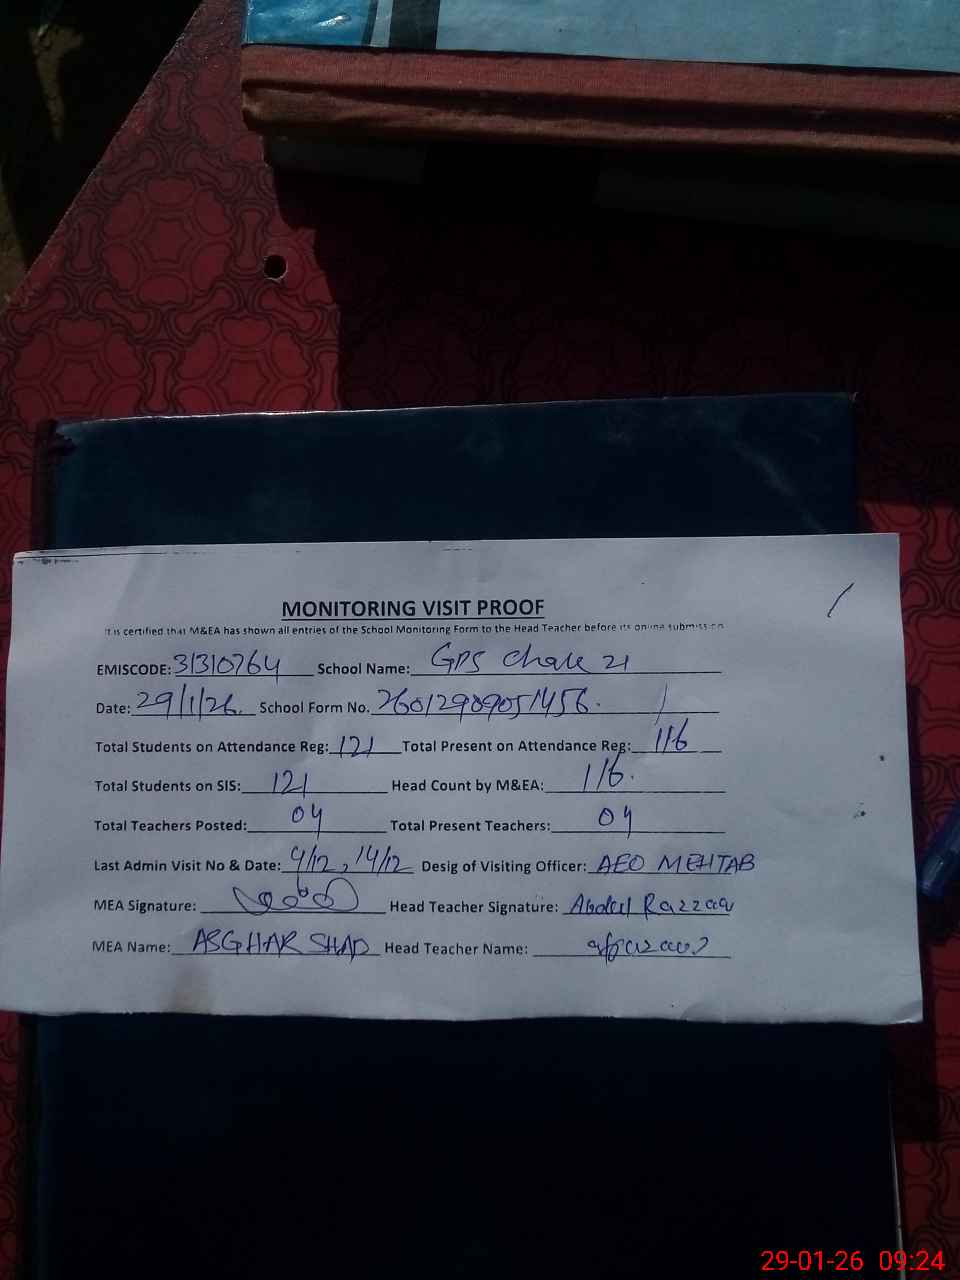 MONITORING VISIT PROOF
It is certified that M&EA has shown all entries of the School Monitoring Form to the Head Teacher before its online submission
EMISCODE: 31310764 School Name: GPS Chak 21
Date: 29/1/26. School Form No. 26012909051456.
Total Students on Attendance Reg: 121 Total Present on Attendance Reg: 116
Total Students on SIS: 121 Head Count by M&EA: 116.
Total Teachers Posted: 04 Total Present Teachers: 04
Last Admin Visit No & Date: 9/12, 14/12 Desig of Visiting Officer: AEO MEHTAB
MEA Signature: Head Teacher Signature: Abdul Razzaq
MEA Name: ASGHAR SHAD Head Teacher Name:
29-01-26 09:24